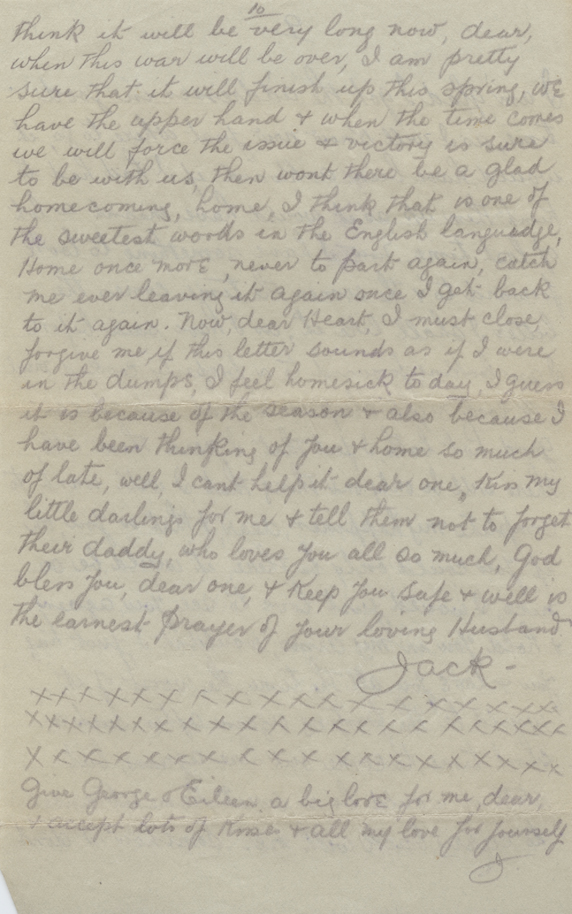 10
think it will be very long now, dear,
when this war will be over, I am pretty
sure that it will finish up this spring, we
have the upper hand & when the time comes
we will force the issue & victory is sure
to be with us, then wont there be a glad
homecoming, home, I think that is one of
the sweetest words in the English languadge,
Home once more, never to part again, catch
me ever leaving it again once I get back
to it again. Now, dear Heart, I must close,
forgive me if this letter sounds as if I were
in the dumps, I feel homesick to day, I guess
it is because of the season & also because I
have been thinking of you & home so much
of late, well, I cant help it dear one, Kiss my
little darlings for me & tell them not to forget
their daddy, who loves you all so much, God
bless you, dear one, & Keep you safe & well is
the earnest prayer of your loving Husband
Jack -
x x x x x x x x x x x x x x x x x x x x x x
x x x x x x x x x x x x x x x x x x x x x x x x
x x x x x x x x x x x x x x x x x x x x
Give George & Eileen a big love for me, dear,
& accept lots of Kisses & all my love for yourself
J